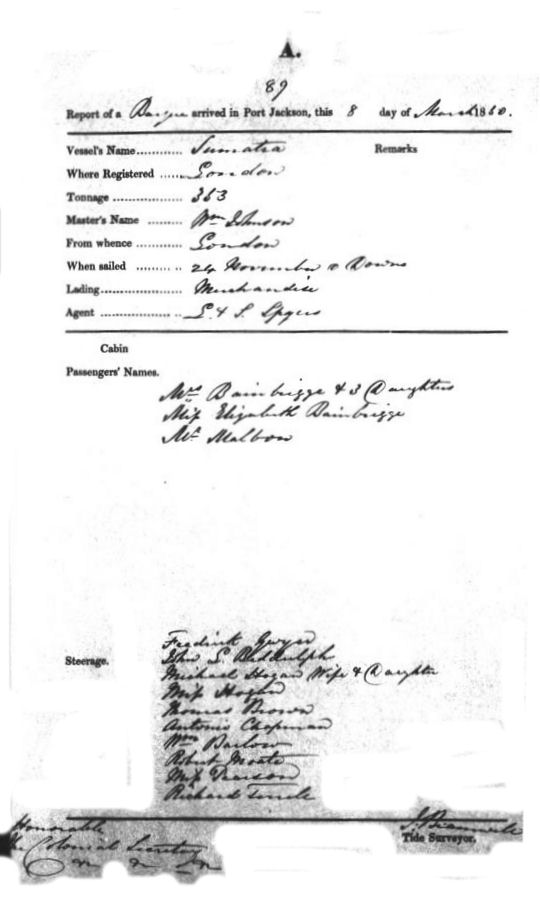 A.
89
Report of a Barque arrived in Port Jackson, this 8 day of March 1860.
Vessel's Name............ Sumatra Remarks
Where Registered ...... London
Tonnage ................. 353
Master's Name ......... Wm Johnson
From whence ............ London
When sailed ......... .. 24 November & Downs
Lading..................... Merchandise
Agent .................. .. E. & S. Spyers
Cabin
Passengers' Names.
Mrs Bainbrigge & 3 Daughters
Miss Elizabeth Bainbrigge
Mr Malbon
Fredrick Gwyer
Steerage. John S. Biddulph
Michael Hogan Wife & Daughter
Miss Hogan
Thomas Brown
Antonio Chapman
Wm Barlow
Robert Moate
Miss Pearson
Richard
Tide Surveyor.
Honorable
The Colonial Secretary